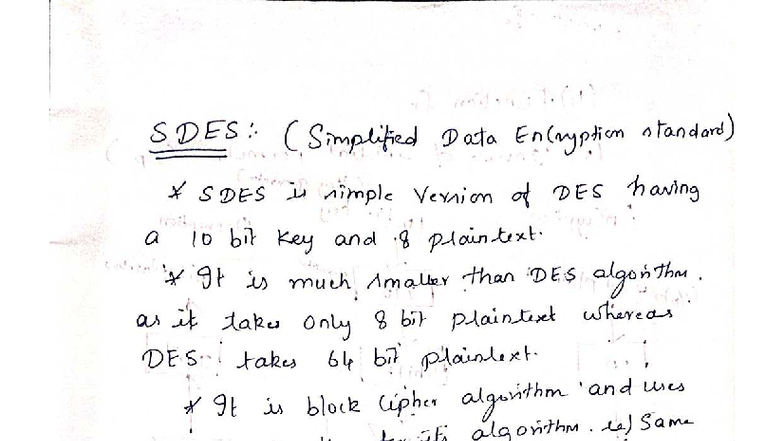 SDES:- (Simplified Data Encryption standard)
* SDES is simple version of DES having
a 10 bit key and 8 plaintext.
* It is much smaller than DES algorithm.
as it takes only 8 bit plaintext whereas
DES takes 64 bit plaintext.
* It is block cipher algorithm and uses
its algorithm. ie) Same